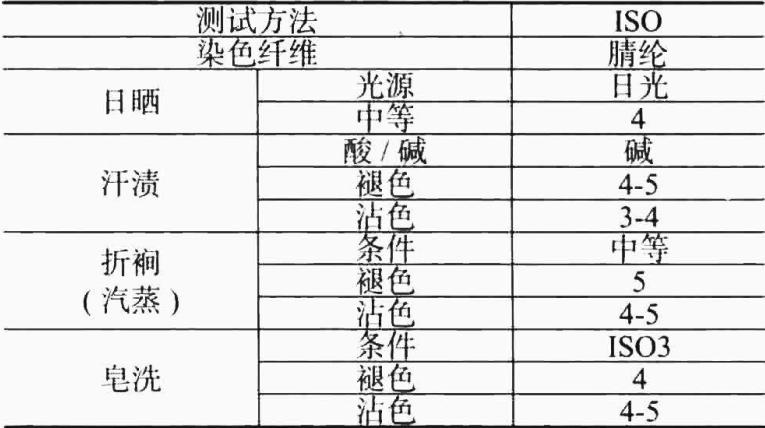 测试方法 ISO
染色纤维 腈纶
日晒 光源 日光
中等 4
汗渍 酸 / 碱 碱
褪色 4-5
沾色 3-4
折裥 ( 汽蒸 ) 条件 中等
褪色 5
沾色 4-5
皂洗 条件 ISO3
褪色 4
沾色 4-5